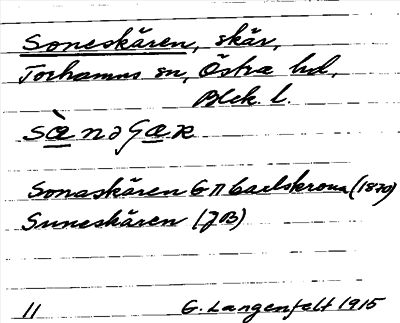 Soneskären, skär,
Torhamns sn, Östra hd,
Blek. l.
Sonaskären GK Carlskrona (1870)
Suneskären (JB)
11 G. Langenfelt 1915